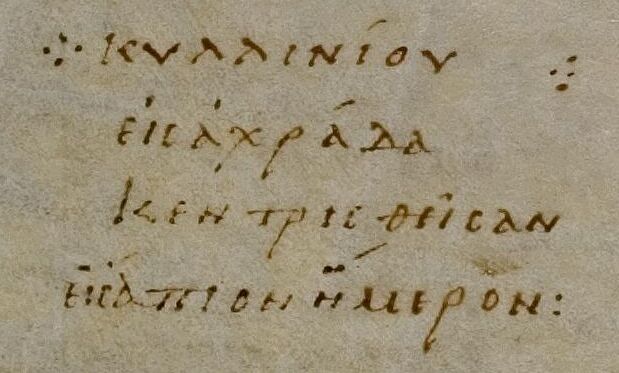 ⁘ κυλλινίου ⁘
εἰς ἀχράδα
κεντρισθεῖσαν
εἰς ἄπιον ἥμερον: